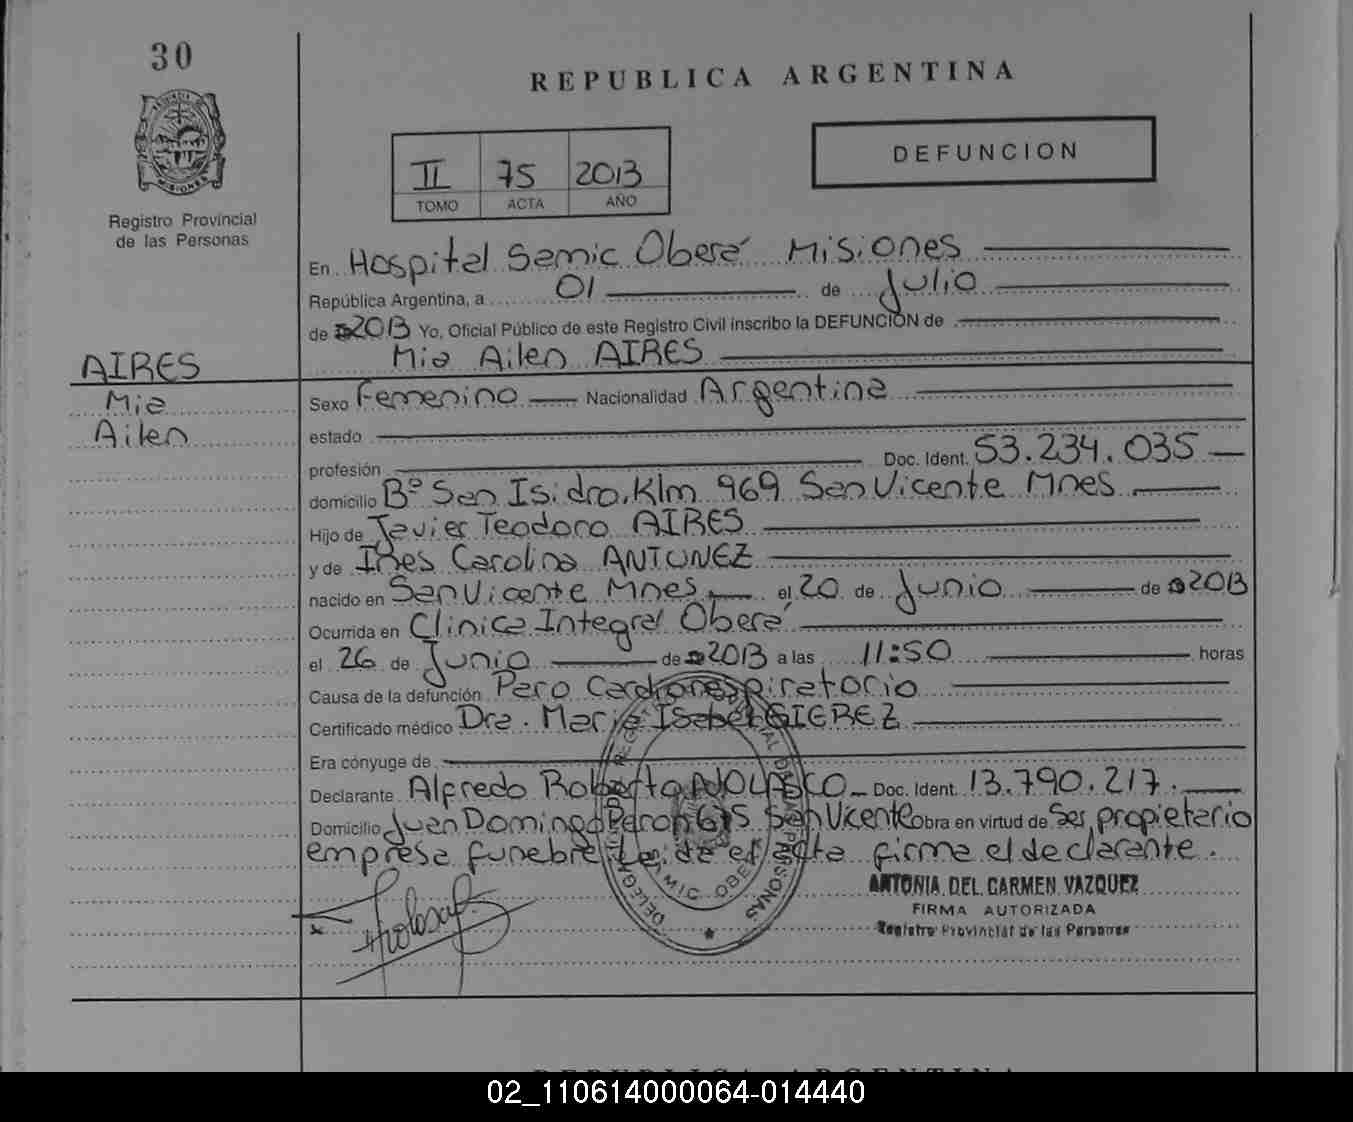 30
REPUBLICA ARGENTINA
II 75 2013
TOMO ACTA AÑO
DEFUNCION
PROVINCIA DE MISIONES
Registro Provincial
de las Personas
En Hospital Samic Oberá Misiones
República Argentina, a 01 de Julio
de 2013 Yo, Oficial Público de este Registro Civil inscribo la DEFUNCIÓN de
Mia Ailen AIRES
AIRES
Mia
Ailen
Sexo Femenino Nacionalidad Argentina
estado
profesión Doc. Ident. 53.234.035
domicilio Bº San Isidro, Klm 969 San Vicente Mnes
Hijo de Javier Teodoro AIRES
y de Ines Carolina ANTUNEZ
nacido en San Vicente Mnes, el 20 de Junio de 2013
Ocurrida en Clinica Integral Oberá
el 26 de Junio de 2013 a las 11:50 horas
Causa de la defunción Paro Cardiorespiratorio
Certificado médico Dra. Maria Isabel GIEREZ
Era cónyuge de
Declarante Alfredo Roberto NOLASCO Doc. Ident. 13.790.217.
Domicilio Juan Domingo Peron San Vicente Obra en virtud de Ser propietario
empresa funebre Leída el acta firma el declarante.
ANTONIA DEL CARMEN VAZQUEZ
FIRMA AUTORIZADA
Registro Provincial de las Personas
REPUBLICA ARGENTINA
02_110614000064-014440